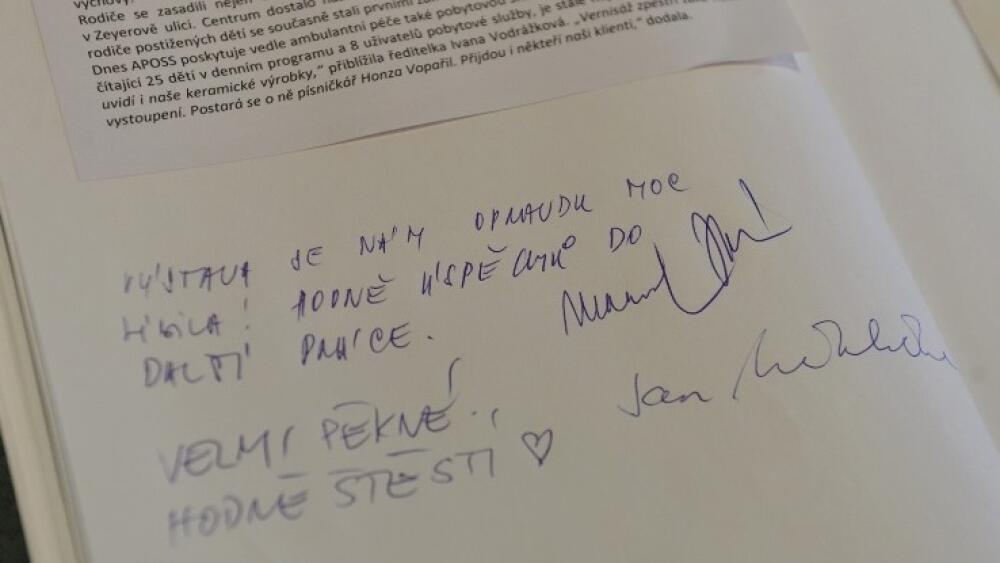 výchovy.
Rodiče se zasadili nejen
v Zeyerově ulici. Centrum dostalo
rodiče postižených dětí se současně stali prvními
Dnes APOSS poskytuje vedle ambulantní péče také pobytovou
čítající 25 dětí v denním programu a 8 uživatelů pobytové služby, je stále
uvidí i naše keramické výrobky,“ přiblížila ředitelka Ivana Vodrážková. „Vernisáž zpestří
vystoupení. Postará se o ně písničkář Honza Vopařil. Přijdou i někteří naši klienti,“ dodala.
VÝSTAVA SE NÁM OPRAVDU MOC
LÍBILA! HODNĚ ÚSPĚCHŮ DO
DALŠÍ PRÁCE.
Jan
VELMI PĚKNÉ!
HODNĚ ŠTĚSTÍ ♡